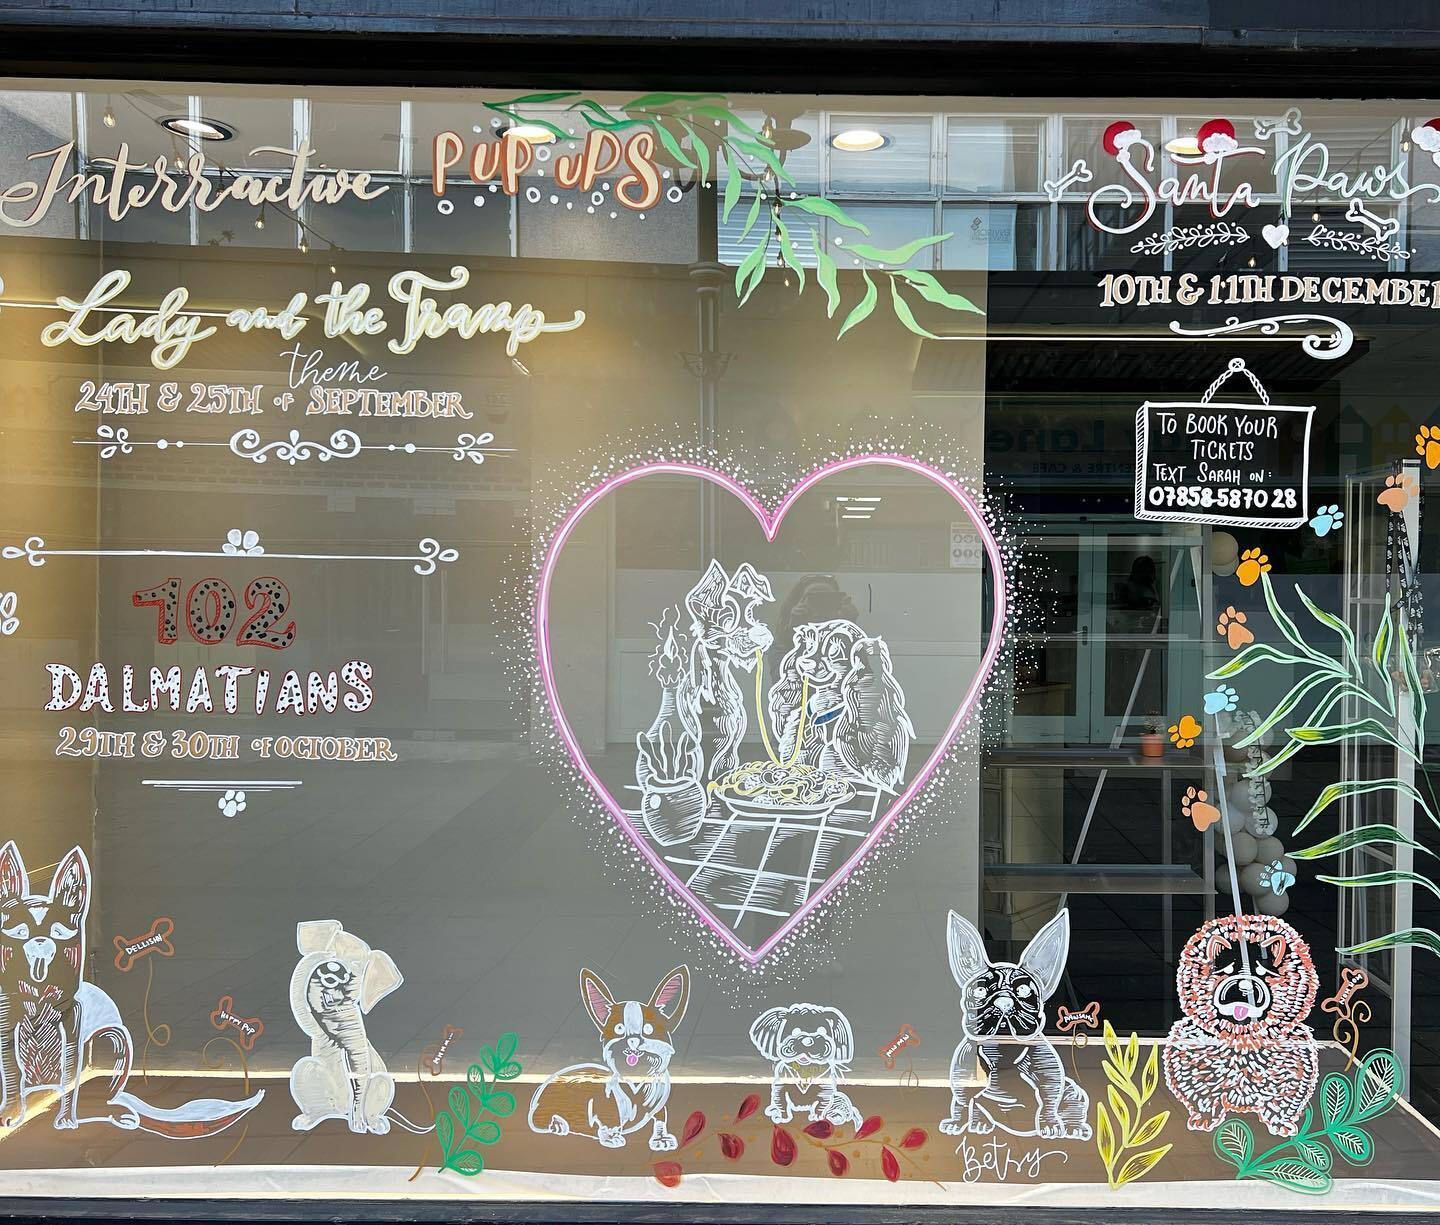 Interractive PUP UPS
Lady and the Tramp
theme
24TH & 25TH of SEPTEMBER
102
DALMATIANS
29TH & 30TH of OCTOBER
Santa Paws
10TH & 11TH DECEMBER
TO BOOK YOUR
TICKETS
TEXT SARAH ON:
07858587028
DELLISIM
Betsy